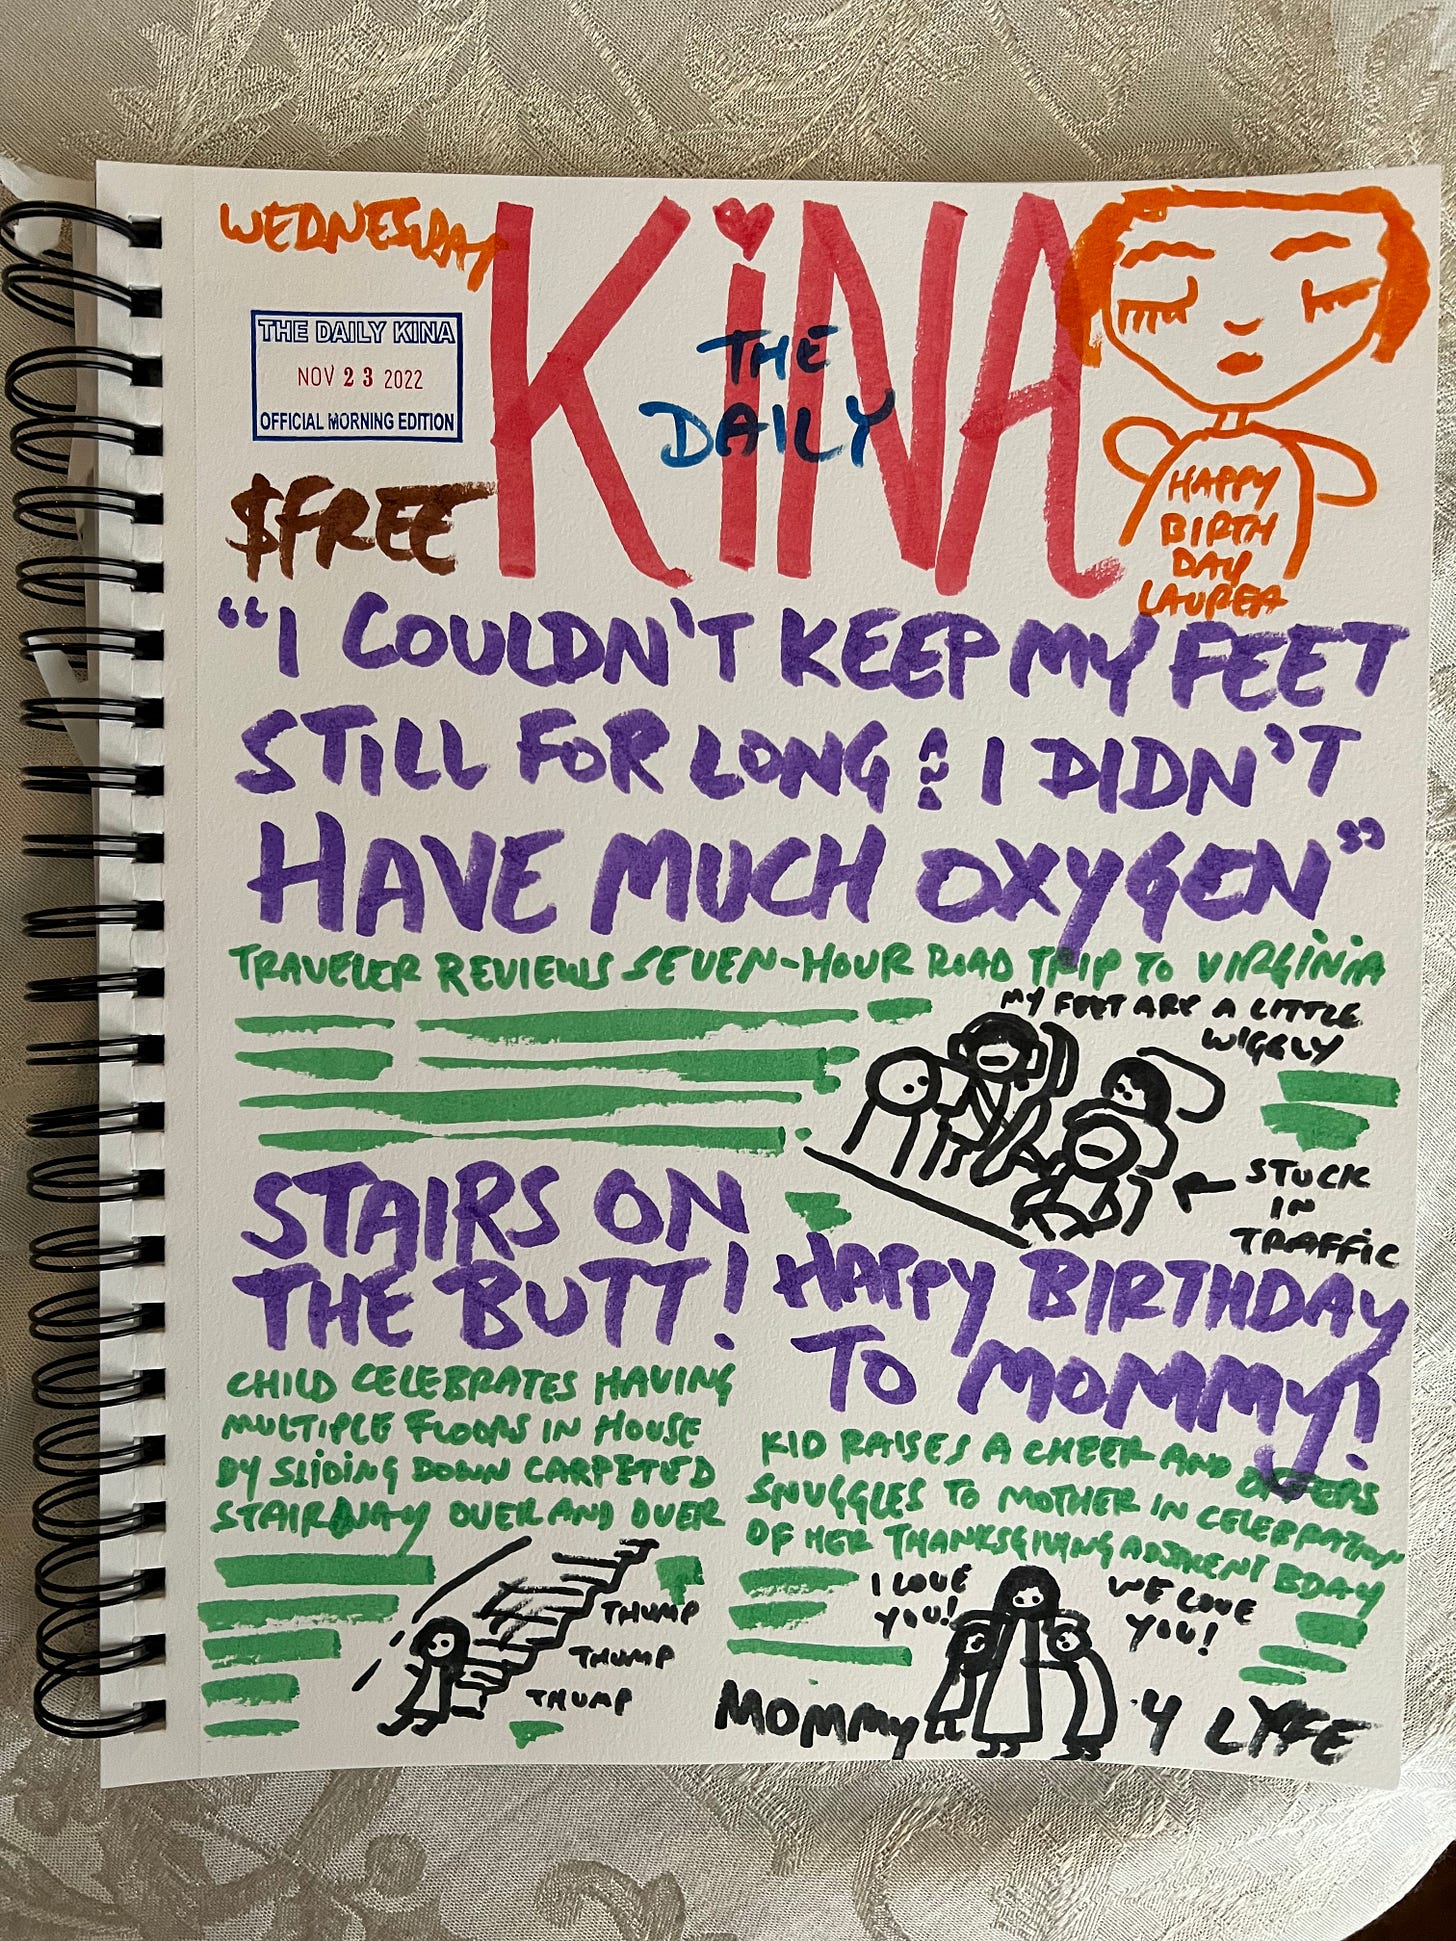 WEDNESDAY
THE DAILY KINA
NOV 23 2022
OFFICIAL MORNING EDITION
$FREE
KiNA
THE
DAILY
HAPPY
BIRTH
DAY
LAUREA
"I COULDN'T KEEP MY FEET
STILL FOR LONG & I DIDN'T
HAVE MUCH OXYGEN"
TRAVELER REVIEWS SEVEN-HOUR ROAD TRIP TO VIRGINIA
MY FEET ARE A LITTLE
WIGGLY
STUCK
IN
TRAFFIC
STAIRS ON
THE BUTT!
CHILD CELEBRATES HAVING
MULTIPLE FLOORS IN HOUSE
BY SLIDING DOWN CARPETED
STAIRWAY OVER AND OVER
THUMP
THUMP
THUMP
HAPPY BIRTHDAY
TO MOMMY!
KID RAISES A CHEER AND OFFERS
SNUGGLES TO MOTHER IN CELEBRATION
OF HER THANKSGIVING ADJACENT BDAY
I LOVE
YOU!
WE LOVE
YOU!
MOMMY 4 LYFE